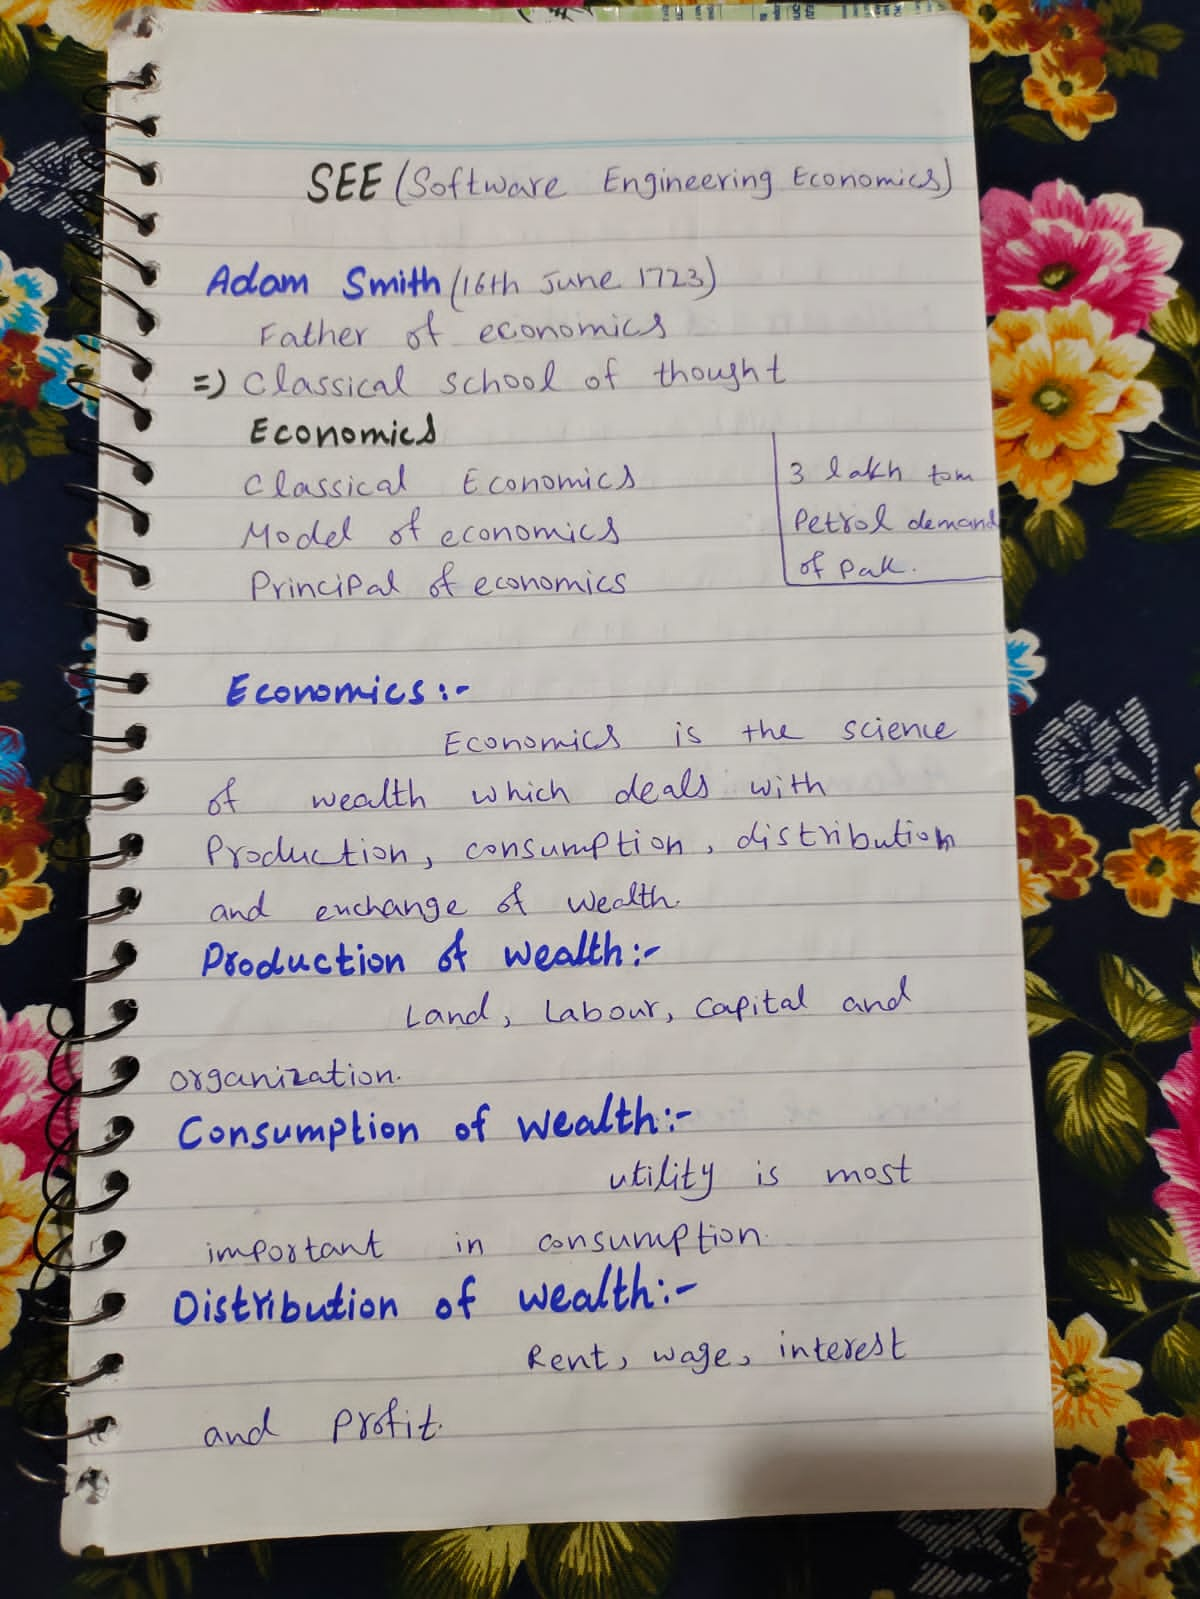 SEE (Software Engineering Economics)
Adam Smith (16th June 1723)
Father of economics
=) Classical school of thought
Economics
Classical Economics
Model of economics
Principal of economics
3 lakh tom
Petrol demand
of Pak.
Economics:-
Economics is the science
of wealth which deals with
Production, consumption, distribution
and exchange of wealth.
Production of wealth:-
Land, Labour, Capital and
organization.
Consumption of wealth:-
utility is most
important in consumption.
Distribution of wealth:-
Rent, wage, interest
and Profit.